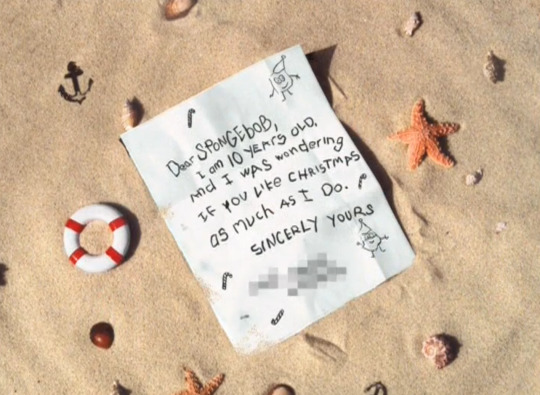 Dear SPONGEBOB,
I am 10 YEARS OLD.
AND I WAS wondering
IF YOU LIKE CHRISTMAS
as much AS I DO.
SINCERLY YOURS